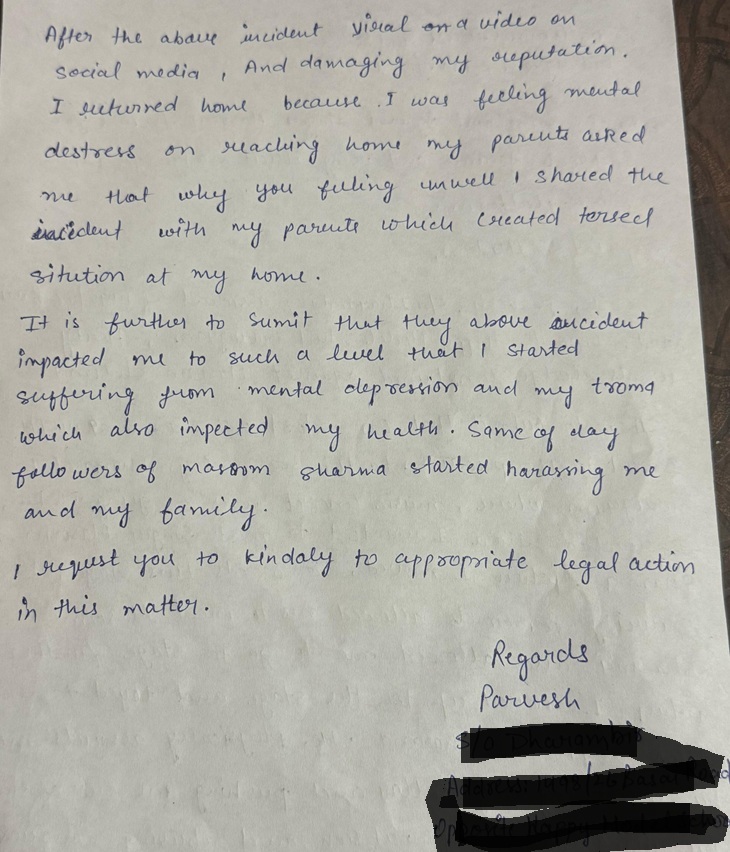 After the above incident viral on a video on
social media, And damaging my reputation.
I returned home because I was feeling mental
destress on reaching home my parents asked
me that why you feeling unwell I shared the
incident with my parents which created
sitution at my home.
It is further to sumit that they above incident
impacted me to such a level that I started
suffering from mental depression and my troma
which also impected my health. Same of day
followers of masoom sharma started harassing me
and my family.
I request you to kindaly to appropriate legal action
in this matter.
Regards
Parvesh